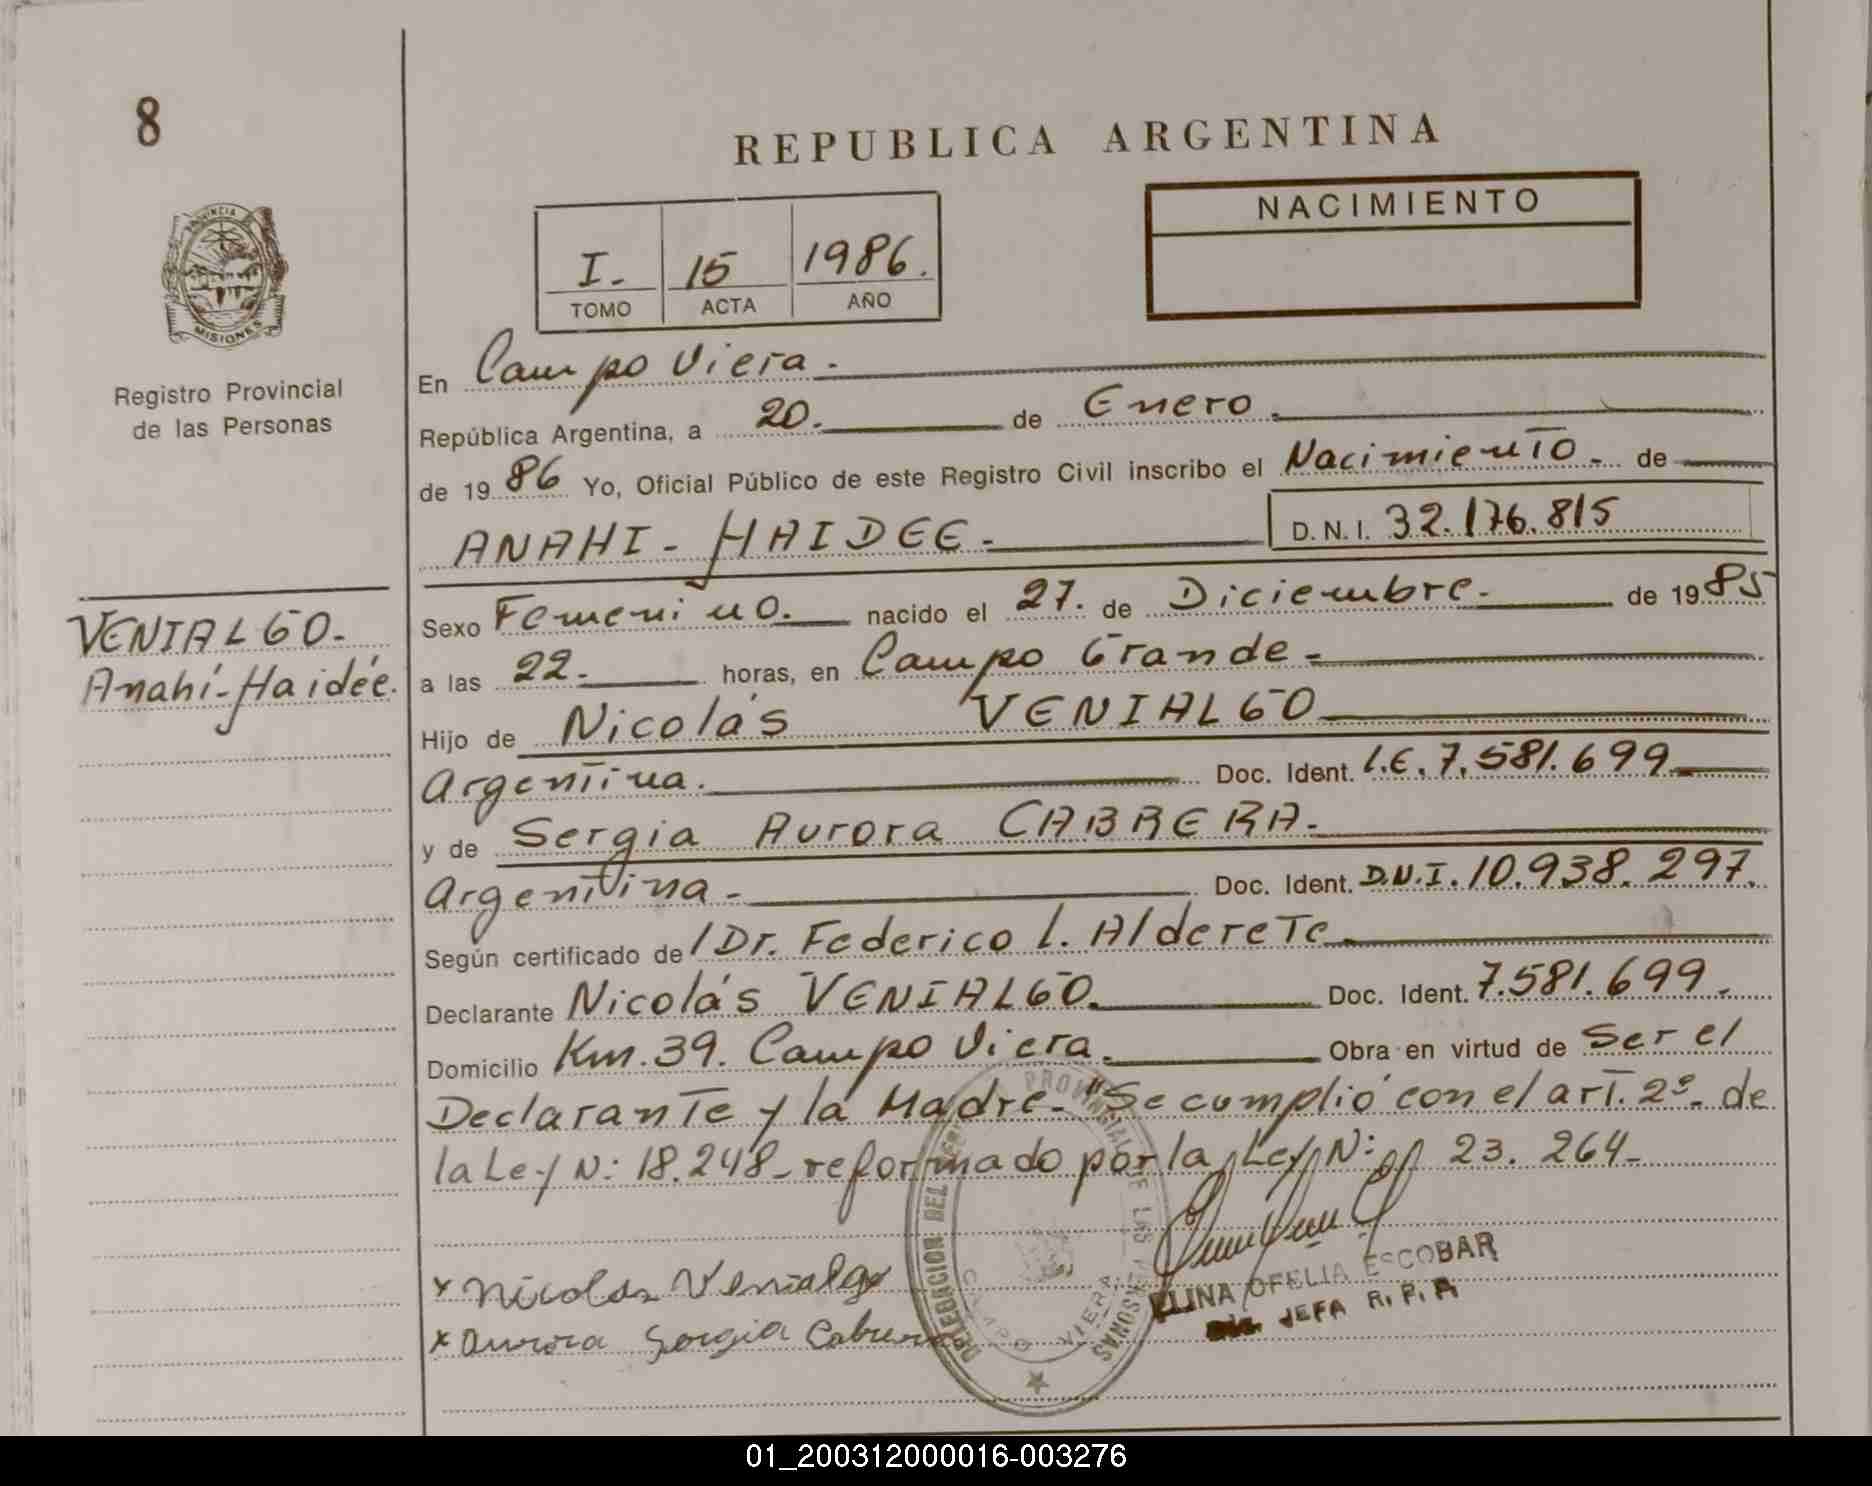 8
REPUBLICA ARGENTINA
PROVINCIA
MISIONES
Registro Provincial
de las Personas
I.- 15 1986.
TOMO ACTA AÑO
NACIMIENTO
En Campo Viera.
República Argentina, a 20. de Enero.
de 1986 Yo, Oficial Público de este Registro Civil inscribo el Nacimiento - de
ANAHI - HAIDEE - D.N.I. 32.176.815
VENIALGO.-
Anahí-Haidée.
Sexo Femenino. nacido el 27. de Diciembre. de 1985
a las 22. horas, en Campo Grande -
Hijo de Nicolás VENIALGO
Argentina. Doc. Ident. L.E. 7.581.699
y de Sergia Aurora CABRERA.
Argentina - Doc. Ident. D.N.I. 10.938.297.
Según certificado de l Dr. Federico L. Alderete
Declarante Nicolás VENIALGO. Doc. Ident. 7.581.699.
Domicilio Km. 39. Campo Viera. Obra en virtud de Ser el
Declarante y la Madre. "Se cumplió con el art. 2º de
la Ley N: 18.248 - reformado por la Ley N: 23.264-
x Nicolas Venialgo
x Aurora Sergia Cabrera
DELEGACION DEL PROVINCIAL DE LAS PERSONAS
CAMPO VIERA
ELINA OFELIA ESCOBAR
JEFA R.P.P.
01_200312000016-003276